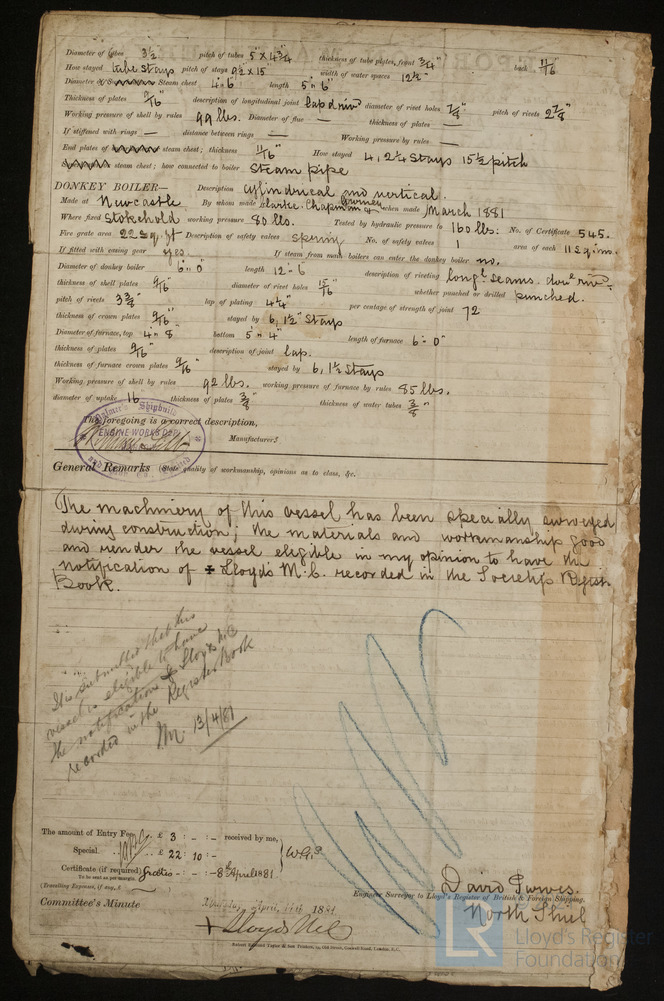 Diameter of tubes 3½ pitch of tubes 5" x 4¾" thickness of tube plates, front ¾" back 11/16"
How stayed tube stays pitch of stays 9½ x 15 width of water spaces 12½"
Diameter of Steam chest 4'·6" length 5'·6"
Thickness of plates 9/16" description of longitudinal joint lap d riv diameter of rivet holes 7/8" pitch of rivets 2 7/8"
Working pressure of shell by rules 99 lbs. Diameter of flue — thickness of plates —
If stiffened with rings — distance between rings — Working pressure by rules —
End plates of steam chest; thickness 11/16" How stayed 4, 2¼ Stays 15½ pitch
steam chest; how connected to boiler Steam pipe
DONKEY BOILER— Description Cylindrical and vertical.
Made at Newcastle By whom made Clarke. Chapman & Gurney when made March 1881
Where fixed Stokehold working pressure 80 lbs. Tested by hydraulic pressure to 160 lbs: No. of Certificate 545.
Fire grate area 22 sq. ft Description of safety valves spring No. of safety valves 1 area of each 11 sq. ins.
If fitted with easing gear yes If steam from main boilers can enter the donkey boiler no.
Diameter of donkey boiler 6'·0" length 12'·6" description of riveting longl seams. dou: riv:
thickness of shell plates 9/16" diameter of rivet holes 15/16" whether punched or drilled punched.
pitch of rivets 3 3/8" lap of plating 4¼" per centage of strength of joint 72
thickness of crown plates 9/16" stayed by 6, 1½" Stays
Diameter of furnace, top 4'·8" bottom 5'·4" length of furnace 6'·0"
thickness of plates 9/16" description of joint lap.
thickness of furnace crown plates 9/16" stayed by 6, 1½ Stays
Working pressure of shell by rules 92 lbs. working pressure of furnace by rules 85 lbs.
diameter of uptake 16 thickness of plates 3/8" thickness of water tubes 3/8"
The foregoing is a correct description,
Palmer's Shipbuilding
ENGINE WORKS DEPT
Manufacturers
General Remarks (State quality of workmanship, opinions as to class, &c.
The machinery of this vessel has been specially surveyed
during construction; the materials and workmanship good
and render the vessel eligible in my opinion to have the
notification of ✠ Lloyd's M.C. recorded in the Society's Register
Book.
It is submitted that this
vessel is eligible to have
the notification ✠ Lloyd's M.C
recorded in the Register Book
13/4/81
The amount of Entry Fee .. £ 3 : - : - received by me,
Special .. .. £ 22 : 10 : -
Certificate (if required) Gratis - : - 8th April 1881.
To be sent as per margin.
(Travelling Expenses, if any, £ )
David Purves.
Engineer Surveyor to Lloyd's Register of British & Foreign Shipping.
North Shields
Committee's Minute April 1881
+ Lloyds M.C.
LR
Lloyd's Register
Foundation